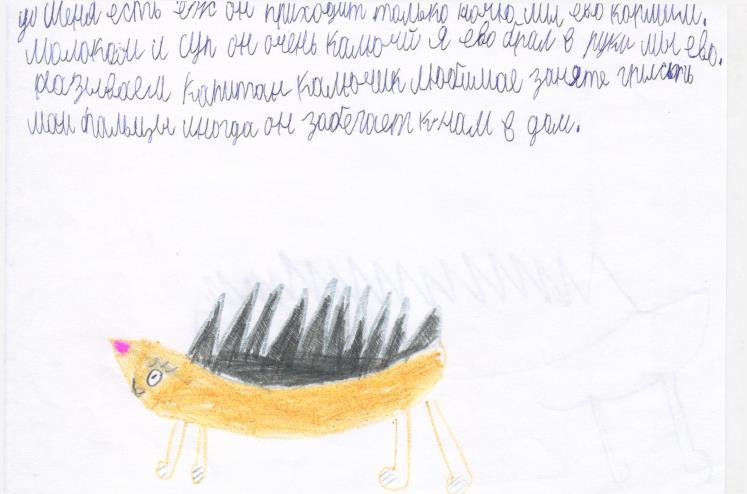 у Меня есть ёж он приходит только ночю мы ево кормим.
молокам и суп он очень калючй я ево брал в руки мы ево.
называем капитан Калючик любимае заняте гристь
маи пальцы иногда он забегает к нам в дом.